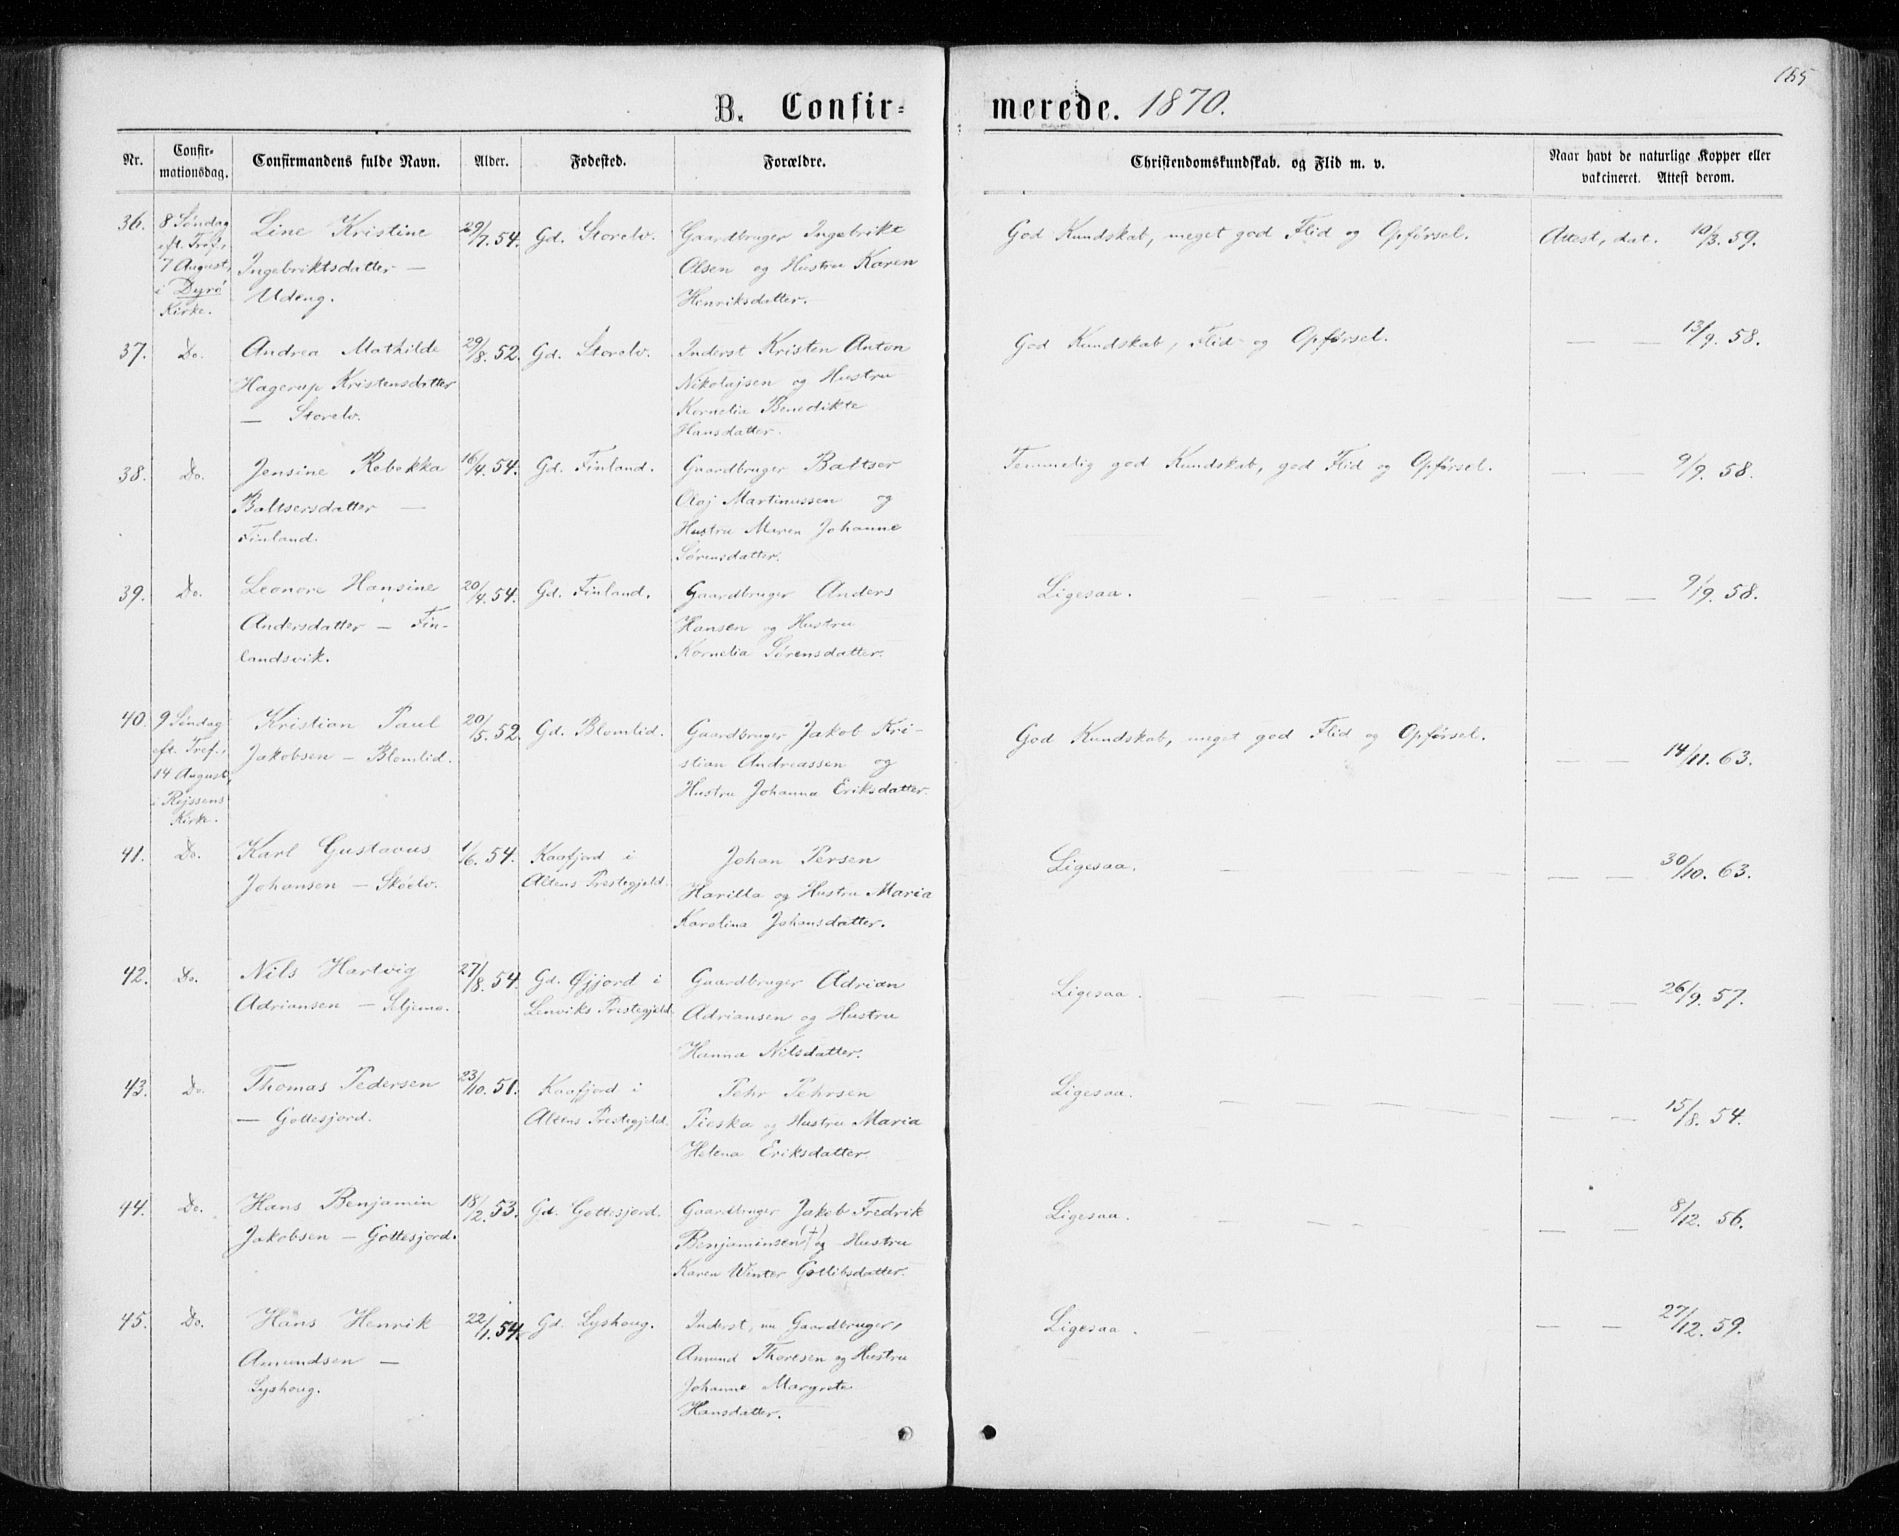 155
B. Confir- merede. 1870.
Nr. Confir-mationsdag. Confirmandens fulde Navn. Alder. Fødested. Forældre. Christendomskundskab. og Flid m. v. Naar havt de naturlige Kopper eller vakcineret. Attest derom.
36. 8 Søndag eft. Tref., 7 August, i Dyrö Kirke. Line Kristine Ingebriktsdatter — Udeng. 29/7. 54. Gd. Storelv. Gaardbruger Ingebrikt Olsen og Hustru Karen Henriksdatter. God Kundskab, meget god Flid og Opførsel. Attest, dat. 10/3. 59.
37. Do. Andrea Mathilde Hagerup Kristensdatter — Storelv. 29/8. 52. Gd. Storelv. Inderst Kristen Anton Nikolajsen og Hustru Kornelia Benedikte Hansdatter. God Kundskab, Flid og Opførsel. — — 13/9. 58.
38. Do. Jensine Rebekka Baltsersdatter — Finland. 16/4. 54. Gd. Finland. Gaardbruger Baltser Olaj Martinussen og Hustru Maren Johanne Sørensdatter. Temmelig god Kundskab, god Flid og Opførsel. — — 9/9. 58.
39. Do. Leonore Hansine Andersdatter — Fin-landsvik. 20/4. 54. Gd. Finland. Gaardbruger Anders Hansen og Hustru Kornelia Sørensdatter. Ligesaa. — — 9/9. 58.
40. 9 Søndag eft. Tref., 14 August, i Rejssens Kirk. Kristian Paul Jakobsen — Blomlid. 20/5. 52. Gd. Blomlid. Gaardbruger Jakob Kri-stian Andreassen og Hustru Johanna Eriksdatter. God Kundskab, meget god Flid og Opførsel. — — 14/11. 63.
41. Do. Karl Gustavus Johansen — Skøelv. 1/6. 54. Kaafjord i Altens Prestegjeld. Johan Persen Harilla og Hustru Maria Karolina Johansdatter. Ligesaa. — — 30/10. 63.
42. Do. Nils Hartvig Adriansen — Seljemo. 27/8. 54. Gd. Øjjord i Lenviks Prestegjeld. Gaardbruger Adrian Adriansen og Hustru Hanna Nilsdatter. Ligesaa. — — 26/9. 57.
43. Do. Thomas Pedersen — Gottesjord. 23/10. 51. Kaafjord i Altens Prestegjeld. Pehr Pehrsen Pieska og Hustru Maria Helena Eriksdatter. Ligesaa. — — 15/8. 54.
44. Do. Hans Benjamin Jakobsen — Gottesjord. 18/2. 53. Gd. Gottesjord. Gaardbruger Jakob Fredrik Benjaminsen (†) og Hustru Karen Winter Gotlibsdatter. Ligesaa. — — 8/12. 56.
45. Do. Hans Henrik Amundsen — Lyshoug. 22/1. 54. Gd. Lyshoug. Inderst, nu Gaardbruger, Amund Thoresen og Hustru Johanne Margrete Hansdatter. Ligesaa. — — 27/12. 59.